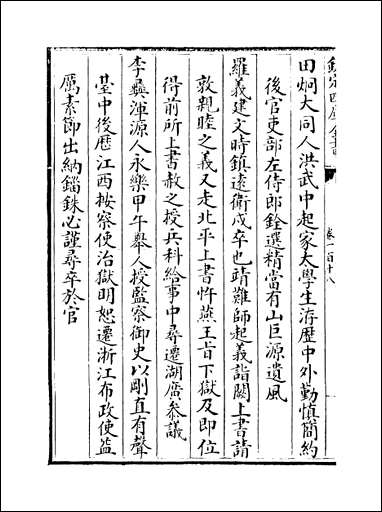 欽定四庫全書
卷一百十八
田炯大同人洪武中起家太學生洊歴中外勤慎簡約
後官吏部左侍郎銓選精當有山巨源遺風
羅義建文時鎮遠衛戍卒也靖難師起義詣闕上書請
敦親睦之義又走北平上書忤燕王㫖下獄及即位
得前所上書赦之授兵科給事中尋遷湖廣叅議
李彛渾源人永樂甲午舉人授監察御史以剛直有聲
䑓中後歴江西按察使治獄明恕遷浙江布政使益
厲素節出納錙銖必謹尋卒於官